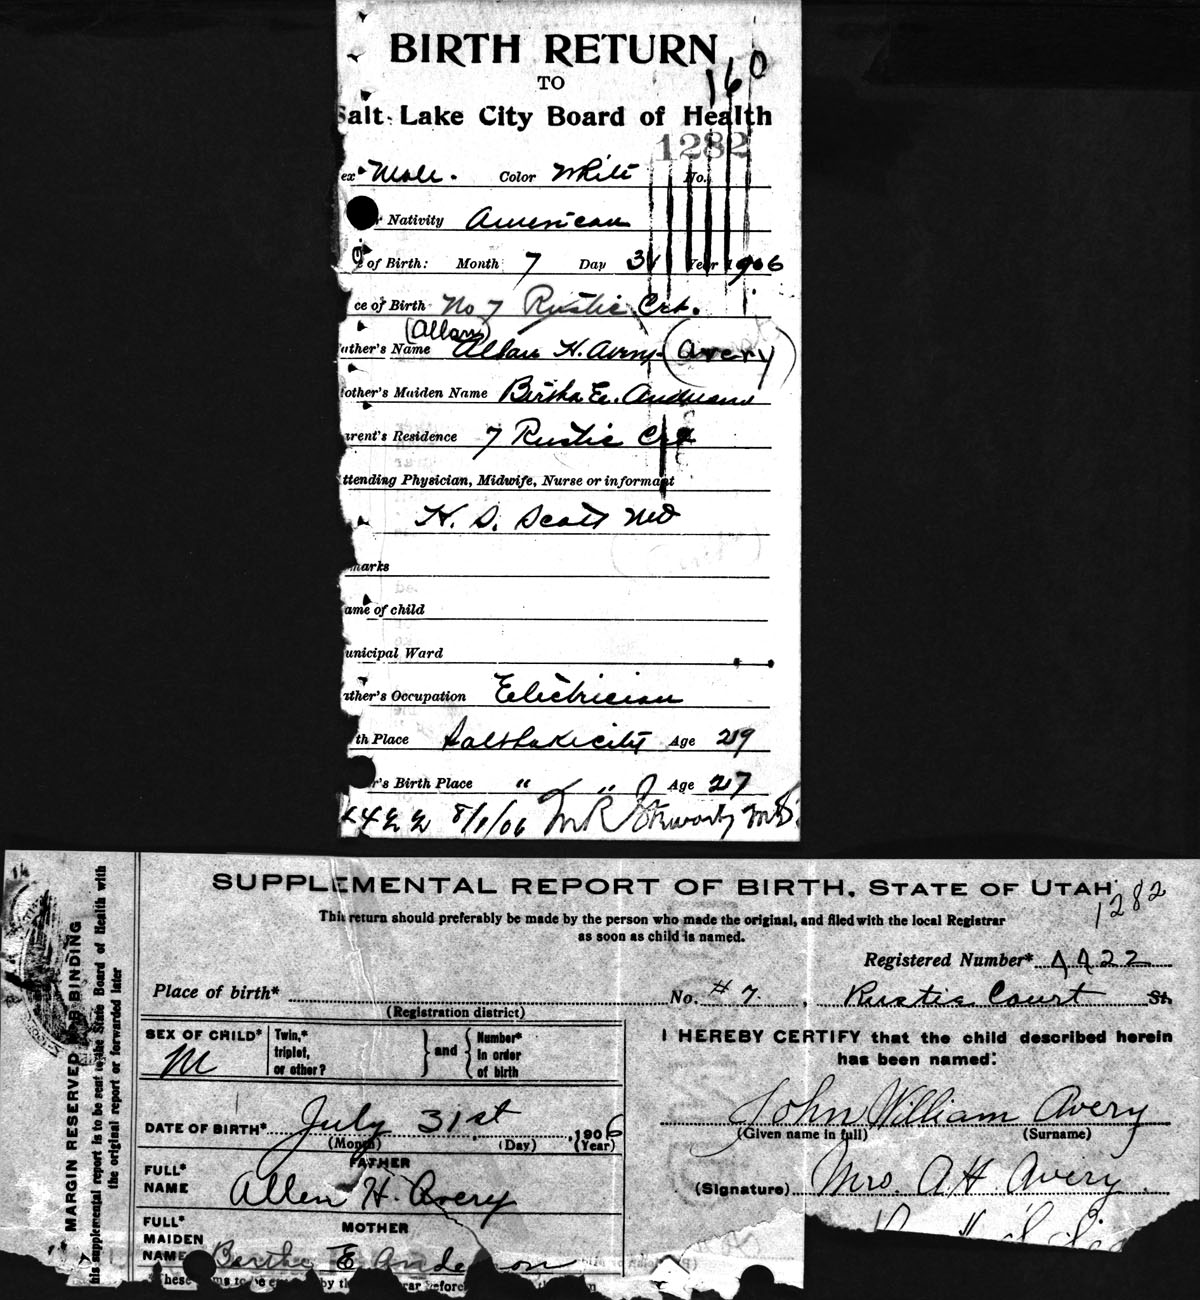 BIRTH RETURN
TO
Salt Lake City Board of Health
160
1282
ex Male. Color White No.
Nativity American
of Birth: Month 7 Day 31 Year 1906
ce of Birth No 7 Rustic Crt.
(Allan)
ather's Name Allan H. Avery (Avery)
other's Maiden Name Bertha E. Anderson
arent's Residence 7 Rustic Crt
ttending Physician, Midwife, Nurse or informant
H. S. Scott MD
marks
ame of child
unicipal Ward
ather's Occupation Electrician
th Place Salt Lake City Age 29
r's Birth Place " " Age 27
4422 8/1/06 M.D.
SUPPLEMENTAL REPORT OF BIRTH, STATE OF UTAH.
1282
This return should preferably be made by the person who made the original, and filed with the local Registrar
as soon as child is named.
Registered Number* 4422
Place of birth* No. # 7. , Rustic Court St.
(Registration district)
SEX OF CHILD* M Twin,* triplet, or other? } and { Number* in order of birth
I HEREBY CERTIFY that the child described herein
has been named:
John William Avery
(Given name in full) (Surname)
DATE OF BIRTH* July 31st, 1906
(Month) (Day) (Year)
FATHER
FULL* NAME Allen H. Avery
(Signature) Mrs. A H. Avery
MOTHER
FULL* MAIDEN NAME Bertha E Anderson
MARGIN RESERVED BINDING
his supplemental report is to be sent to the State Board of Health with
the original report or forwarded later